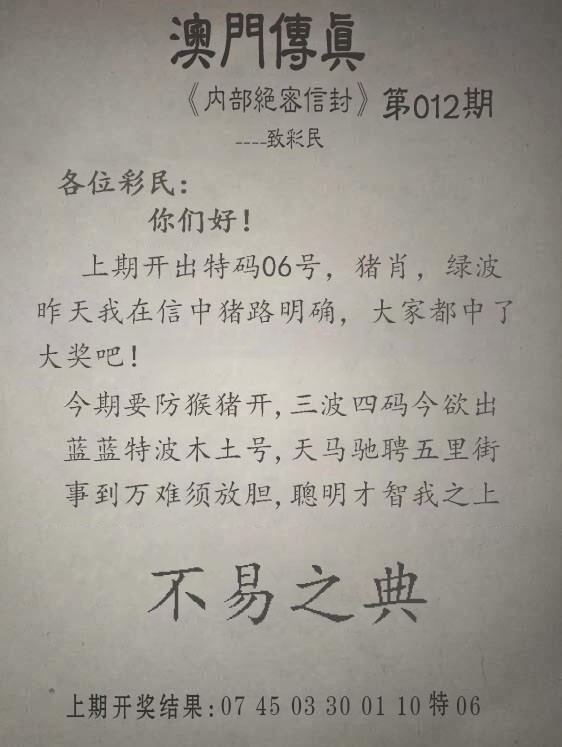 澳門傳真
《内部絕密信封》第012期
----致彩民
各位彩民：
你们好！
上期开出特码06号，猪肖，绿波
昨天我在信中猪路明确，大家都中了
大奖吧！
今期要防猴猪开,三波四码今欲出
蓝蓝特波木土号,天马驰聘五里街
事到万难须放胆,聰明才智我之上
不易之典
上期开奖结果:07 45 03 30 01 10 特 06